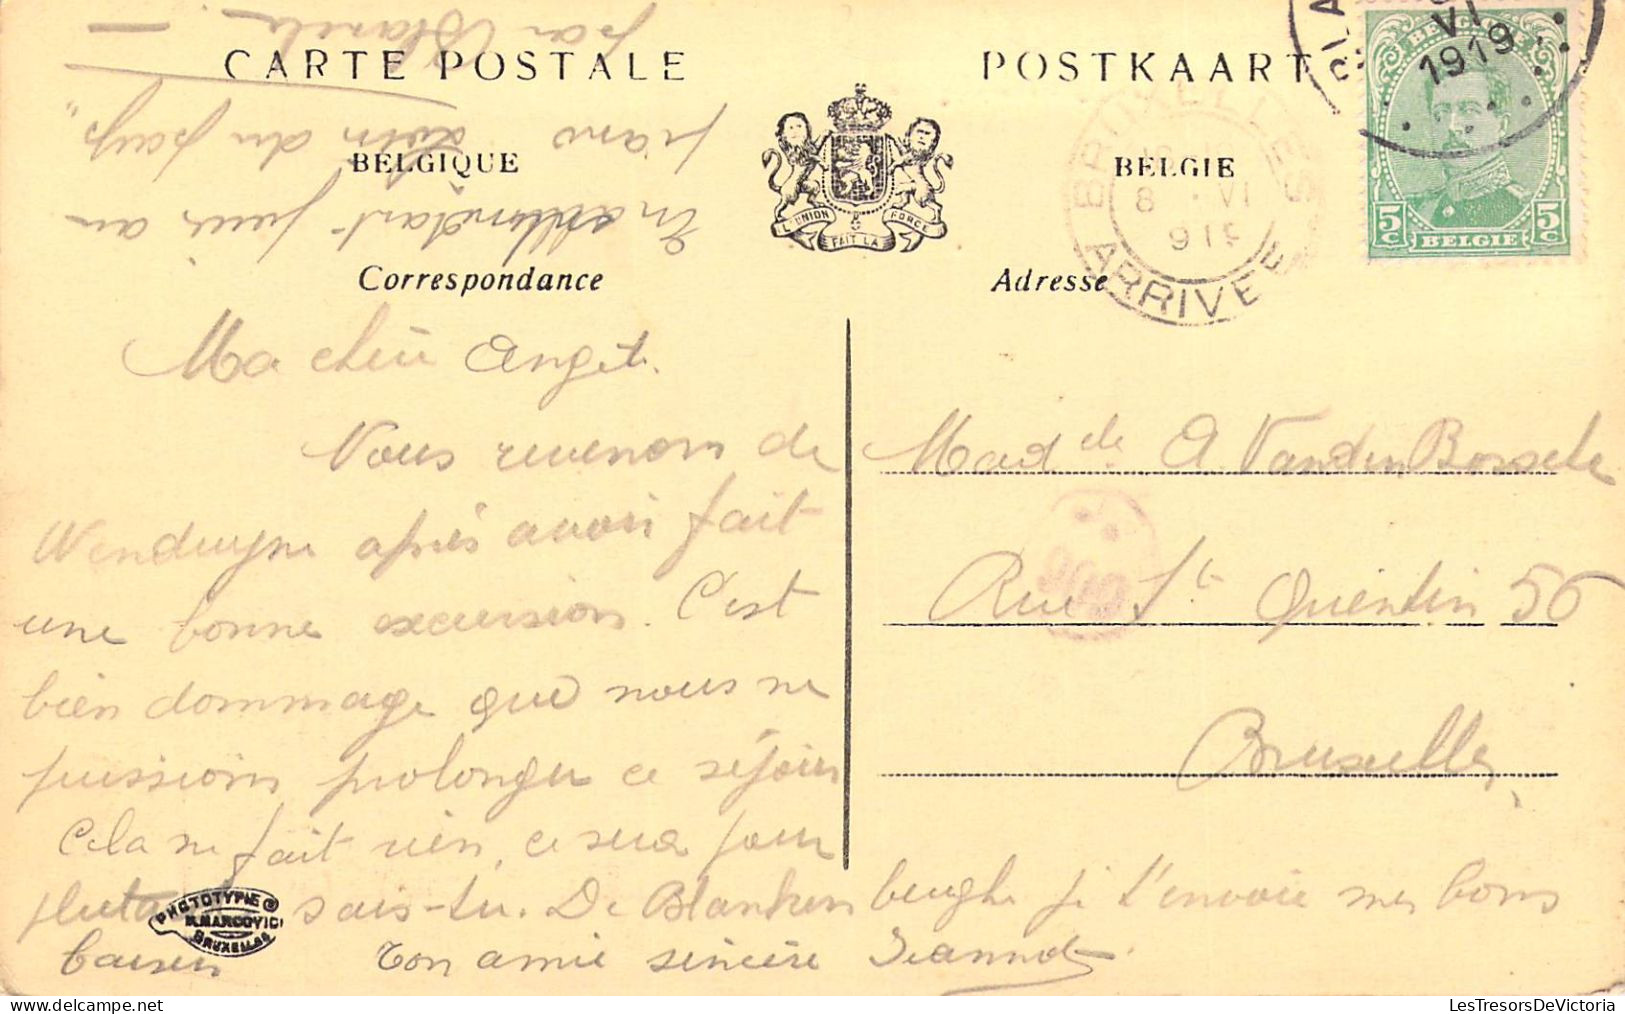 CARTE POSTALE
POSTKAART
BELGIQUE
BELGIE
L'UNION FAIT LA FORCE
Correspondance
Adresse
BRUXELLES
8 VI
ARRIVEE
VI
1919
BELGIQUE
5c BELGIE 5c
En attendant joue au
piano "Loin du pays"
par
Ma chère Anget.
Nous revenons de
Wenduyne après avoir fait
une bonne excursion. C'est
bien dommage que nous ne
puissions prolonger ce séjour
Cela ne fait rien, ce sera pour
plutard sais-tu. De Blankenberghe je t'envoie mes bons
baisers Ton amie sincère Jeannot
Mad de A VandenBossche
Rue St Quentin 56
Bruxelles
PHOTOTYPIE
M. MARCOVICI
BRUXELLES
LesTresorsDeVictoria